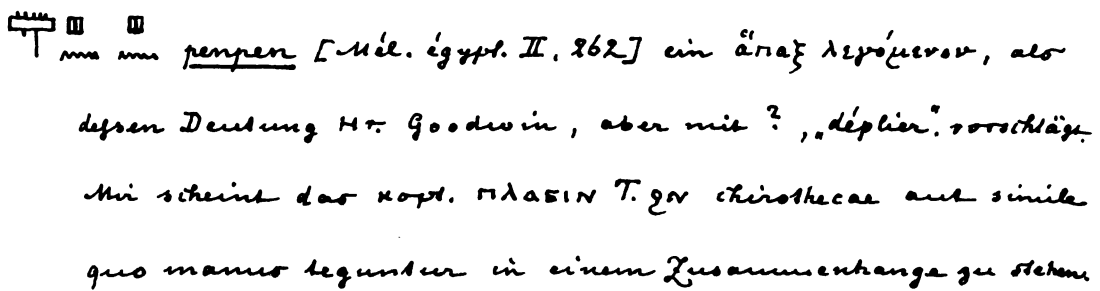 penpen [Mél. égypt. II, 262] ein ἅπαξ λεγόμενον, als
dessen Deutung Hr. Goodwin, aber mit ?, „déplier“. vorschlägt.
Mir scheint das kopt. ⲡⲗⲁϭⲓⲛ T. ϩⲛ chirothecae aut simile
quo manus teguntur in einem Zusammenhange zu stehen.